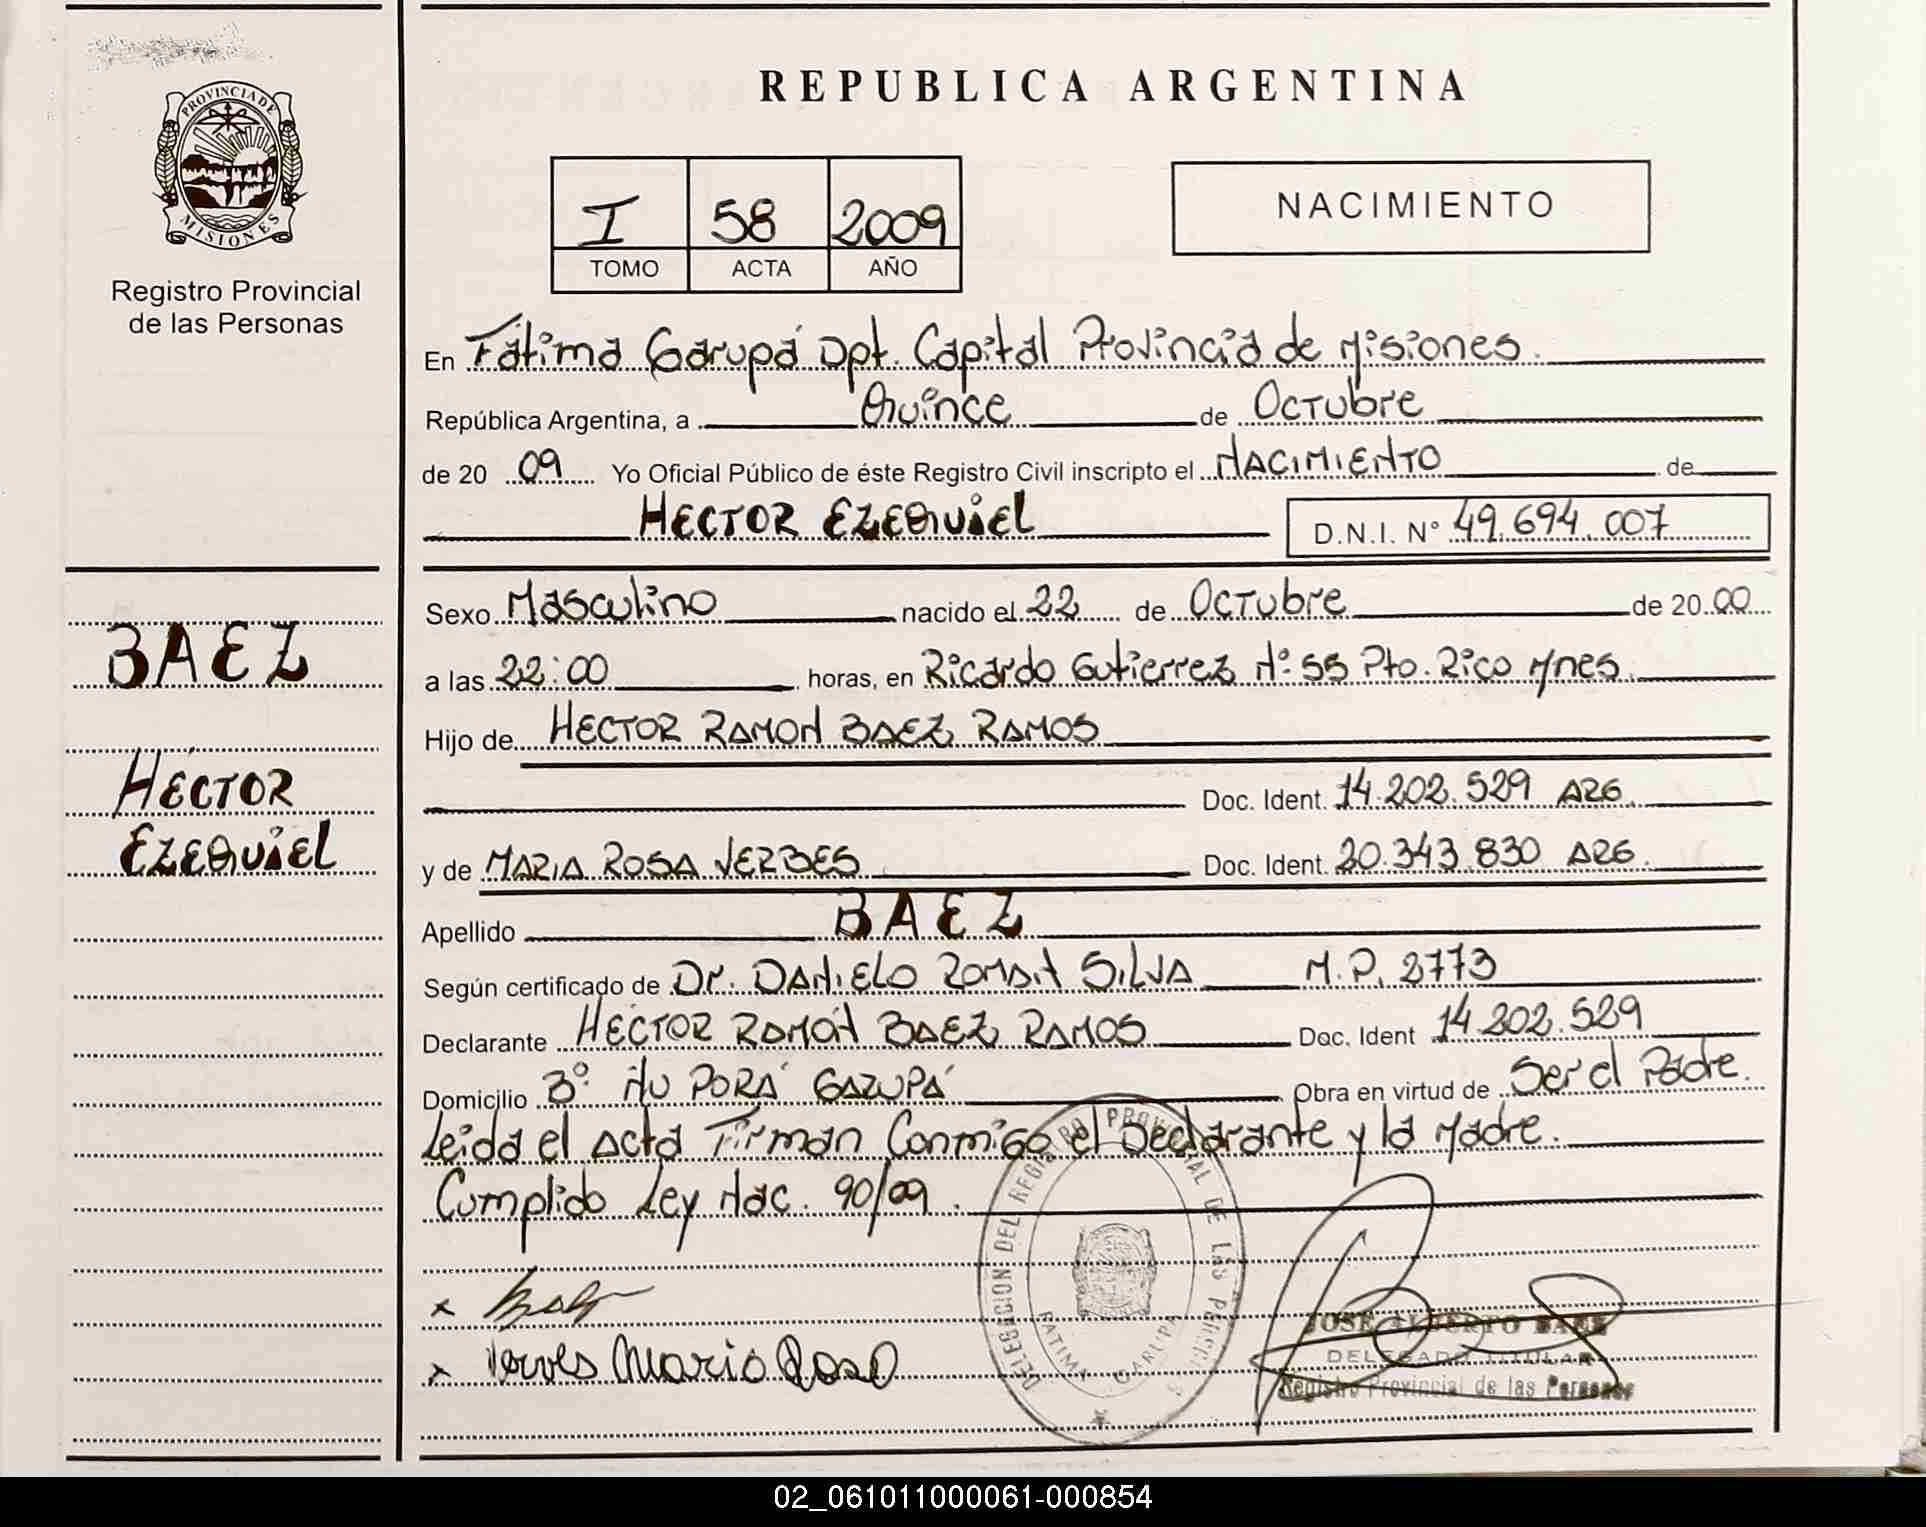 REPUBLICA ARGENTINA
PROVINCIA DE MISIONES
Registro Provincial
de las Personas
I 58 2009
TOMO ACTA AÑO
NACIMIENTO
En Fátima Garupá Dpt. Capital Provincia de Misiones.
República Argentina, a Quince de Octubre
de 20 09 Yo Oficial Público de éste Registro Civil inscripto el NACIMIENTO de
HECTOR EZEQUIEL D.N.I. N° 49.694.007
BAEZ
HECTOR
EZEQUIEL
Sexo Masculino nacido el 22 de Octubre de 20 00
a las 22:00 horas, en Ricardo Gutierrez N°: 55 Pto. Rico Mnes.
Hijo de HECTOR RAMON BAEZ RAMOS
Doc. Ident. 14.202.529 ARG.
y de MARIA ROSA VERBES Doc. Ident. 20.343.830 ARG.
Apellido BAEZ
Según certificado de Dr. DANIELO ROMAN SILVA M.P. 2773
Declarante HECTOR RAMÓN BAEZ RAMOS Doc. Ident 14.202.529
Domicilio B° ÑU PORÁ GARUPÁ Obra en virtud de Ser el Padre.
Leida el Acta Firman Conmigo el Declarante y la Madre.
Cumplido Ley Nac. 90/09.
x
x Verves Maria Rosa
DELEGACION DEL REGISTRO PROVINCIAL DE LAS PERSONAS
FATIMA GARUPA
JOSE ALBERTO BAEZ
DELEGADO TITULAR
Registro Provincial de las Personas
02_061011000061-000854